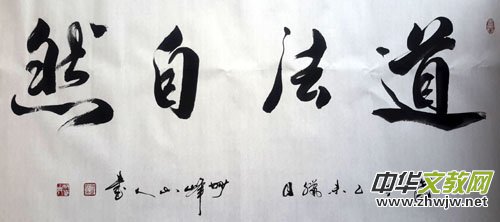 道法自然
乙未臘月
峰山人書
中华文教网
www.zhwjw.net